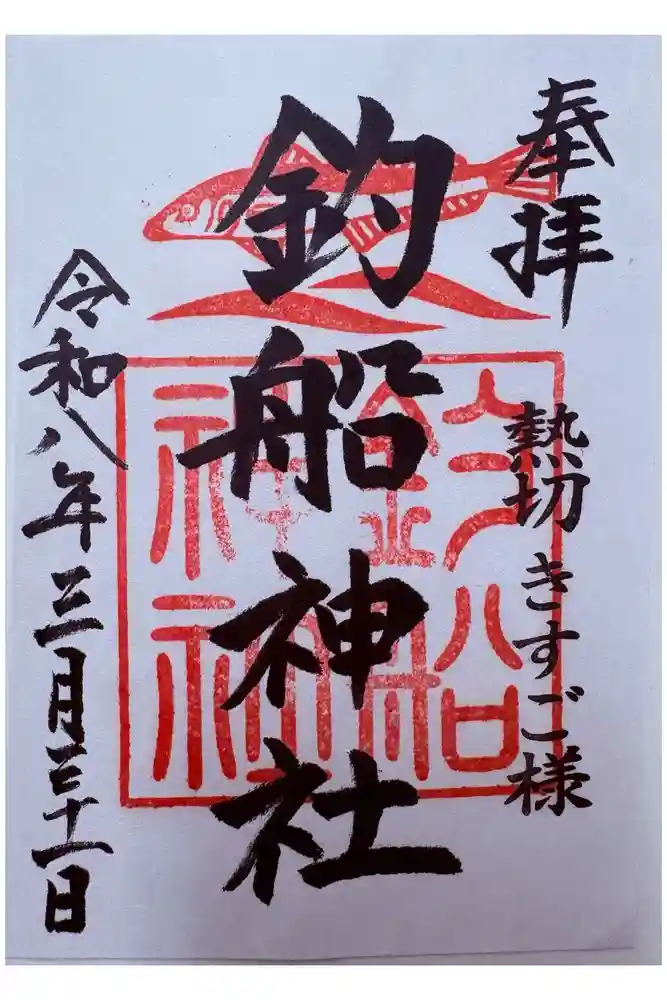 奉拝
熱切 きすご様
釣船神社
釣船
神社
令和八年三月三十一日